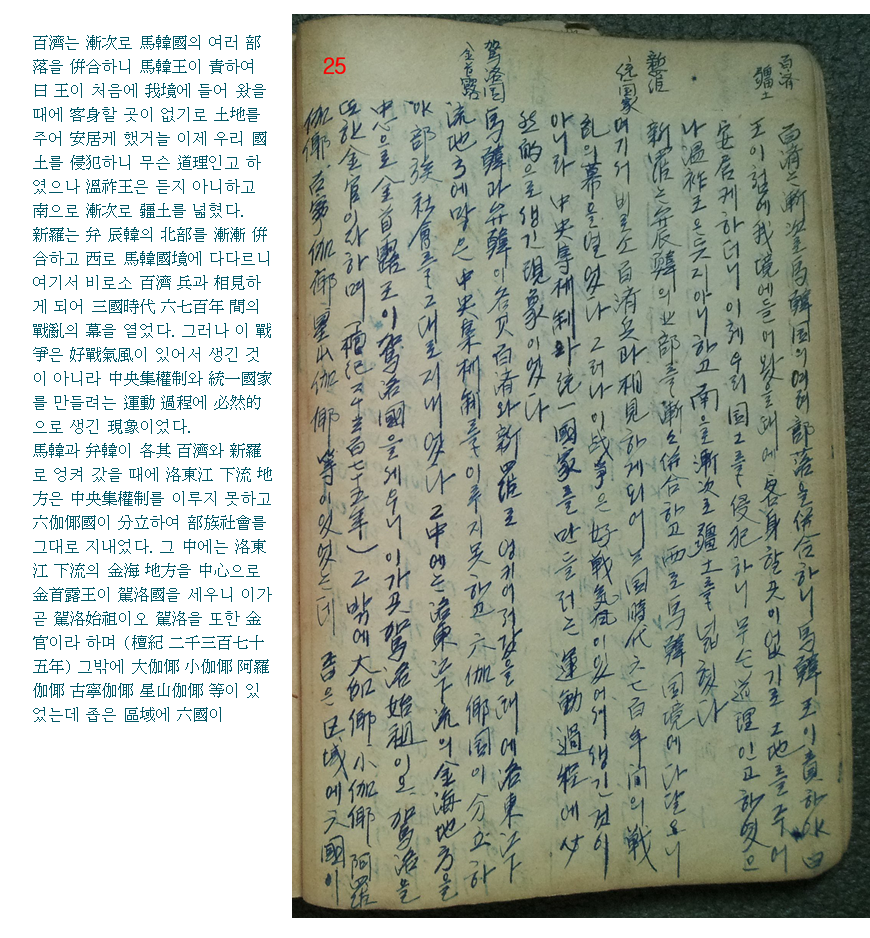 百濟는 漸次로 馬韓國의 여러 部
落을 倂合하니 馬韓王이 責하여
曰 王이 처음에 我境에 들어 왔을
때에 客身할 곳이 없기로 土地를
주어 安居케 했거늘 이제 우리 國
土를 侵犯하니 무슨 道理인고 하
였으나 溫祚王은 듣지 아니하고
南으로 漸次로 疆土를 넓혔다.
新羅는 弁 辰韓의 北部를 漸漸 倂
合하고 西로 馬韓國境에 다다르니
여기서 비로소 百濟 兵과 相見하
게 되어 三國時代 六七百年 間의
戰亂의 幕을 열었다. 그러나 이 戰
爭은 好戰氣風이 있어서 생긴 것
이 아니라 中央集權制와 統一國家
를 만들려는 運動 過程에 必然的
으로 생긴 現象이었다.
馬韓과 弁韓이 各其 百濟와 新羅
로 엉켜 갔을 때에 洛東江 下流 地
方은 中央集權制를 이루지 못하고
六伽倻國이 分立하여 部族社會를
그대로 지내었다. 그 中에는 洛東
江 下流의 金海 地方을 中心으로
金首露王이 駕洛國을 세우니 이가
곧 駕洛始祖이오 駕洛을 또한 金
官이라 하며 (檀紀 二千三百七十
五年) 그밖에 大伽倻 小伽倻 阿羅
伽倻 古寧伽倻 星山伽倻 等이 있
었는데 좁은 區域에 六國이
25
百済
疆土
百済는 漸次로 馬韓国의 여러 部落을 併合하니 馬韓王이 責하야 曰
王이 첨에 我境에 들어 왔을 때에 容身할 곳이 없기로 土地를 주어
安居케 하더니 이제 우리 国土를 侵犯하니 무슨 道理인고 하엿으
나 溫祚王은 듯지 아니하고 南을 漸次로 疆土를 넓혔다
新羅
統國家
新羅는 弁辰韓의 北部를 漸々 併合하고 西로 馬韓国境에 다달으니
여기서 비로소 百済兵과 相見하게 되어 三国時代 六七百年間의 戦
乱의 幕을 열었다 그러나 이 战争은 好戦気風이 있어서 생긴 것이
아니라 中央集权制와 統一國家를 만들려는 運動過程에서 必
然的으로 생긴 現象이었다
駕洛国
金首露
馬韓과 弁韓이 各其 百済와 新羅로 엉키어져 갔을 때에 洛東江 下
流地方에 많은 中央集权制를 이루지 못하고 六伽倻国이 分立하
야 部族社會를 그대로 지내였다 그 中에는 洛東江下流의 金海地方을
中心으로 金首露王이 駕洛國을 세우니 이가 곧 駕洛始祖이오 駕洛을
또한 金官이라 하며 (檀紀 二千三百七十五年) 그 밖에 大伽倻 小伽倻 阿羅
伽倻 古寧伽倻 星山伽倻 等이 있었는데 좁은 区域에 六國이